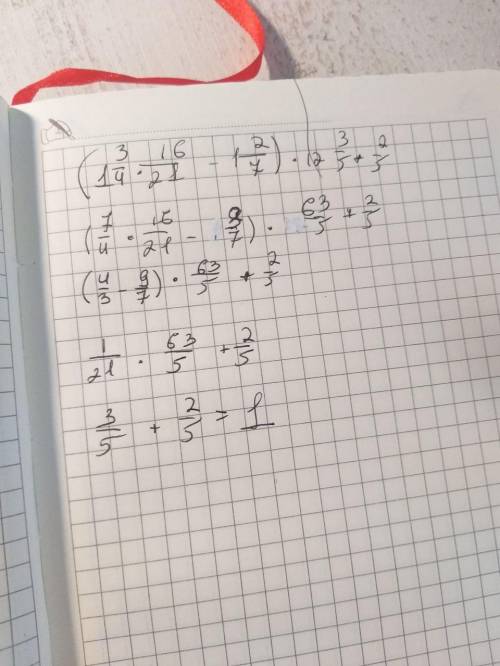 (1 3/4 · 16/21 - 1 2/7) · 12 3/5 + 2/5
(7/4 · 16/21 - 9/7) · 63/5 + 2/5
(4/3 - 9/7) · 63/5 + 2/5
1/21 · 63/5 + 2/5
3/5 + 2/5 = 1